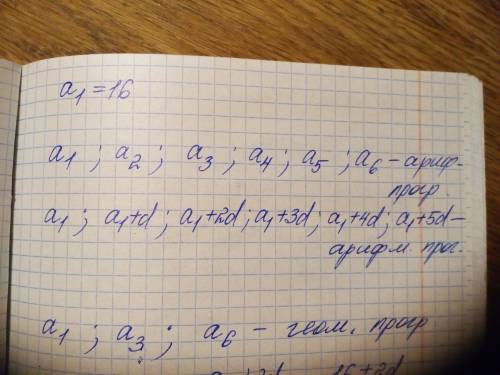 a₁ = 16
a₁ ; a₂ ; a₃ ; a₄ ; a₅ ; a₆ - ариф-
прогр.
a₁ ; a₁+d ; a₁+2d ; a₁+3d ; a₁+4d ; a₁+5d -
арифм. прог.
a₁ ; a₃ ; a₆ - геом. прогр.